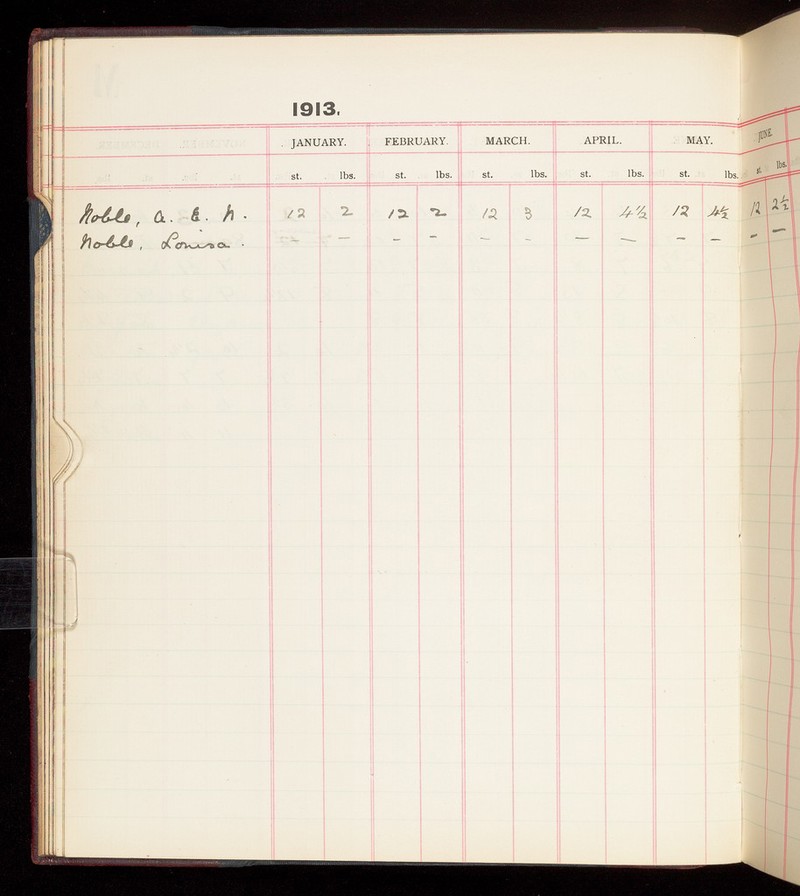 1913.
JANUARY. FEBRUARY. MARCH. APRIL. MAY. JUNE.
st. lbs. st. lbs. st. lbs. st. lbs. st. lbs. st. lbs.
Noble, A. E. N. 12 2 12 2 12 3 12 4½ 12 4½ 12 2½
Noble, Louisa. — — — — — — — — — — — —